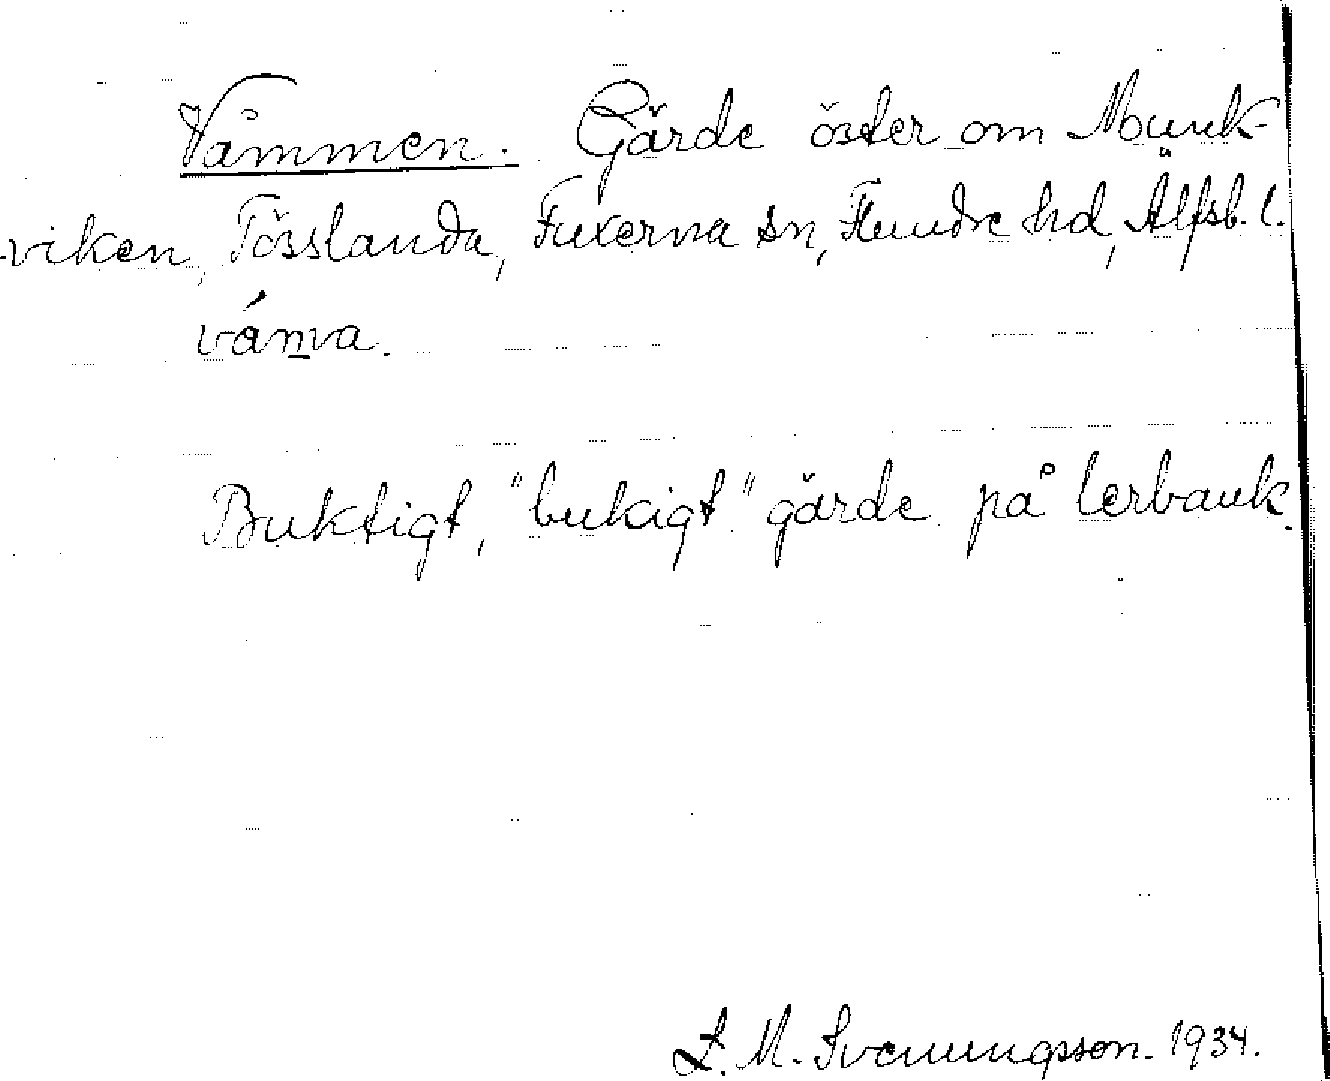 Våmmen. Gärde öster om Munk-
viken, Tösslanda, Fuxerna sn, Flundre hd, Älfsb. l.
våma.
Buktigt, "bukigt" gärde på lerbank.
L. M. Svenungsson. 1934.